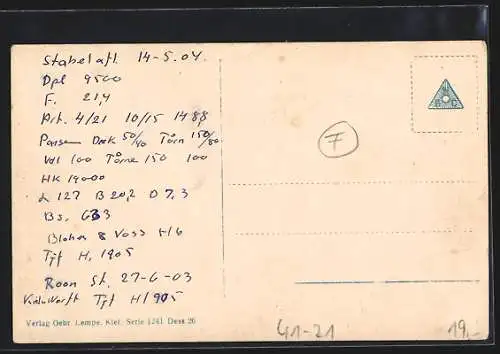 Stabelafl. 14-5.04.
Dpl 9500
F. 21,4
Art. 4/21 10/15 14 88
Panzer Deck 50/40 Törn 150/80
Vdl 100 Törne 150 100
HK 19000
L 127 B 20,2 D 7,3
Bs. 633
Blohm & Voss H/6
Tjf H. 1905
Roon St. 27-6-03
Tjf H/905
Verlag Gebr. Lempe, Kiel. Serie 1241 Dess 26
N
B C
F
G1-21
19,-